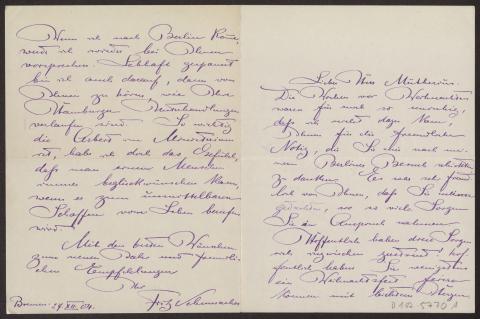 Lieber Herr Muthesius.
Die Wochen vor Weihnachten
waren für mich so unruhig,
daß ich nicht dazu kam,
Ihnen für die freundliche
Notiz, die Sie mir nach mei-
nem Berliner Besuch schickten
zu danken. Es war sehr freund-
lich von Ihnen, daß Sie meiner
gedachten, wo so viele Sorgen
Sie in Anspruch nahmen.
Hoffentlich haben diese Sorgen
sich inzwischen zerstreut, hof-
fentlich haben Sie wenigstens
ein Weihnachtsfest feiern
können mit leichterem Herzen
D 102-5770 1
Wenn ich nach Berlin komme,
werde ich wieder bei Ihnen
vorsprechen. Lebhaft gespannt
bin ich auch darauf, dann von
Ihnen zu hören, wie Ihre
Hamburger Verhandlungen
verlaufen sind. So wichtig
die Arbeit im Ministerium
ist, hab ich doch das Gefühl,
daß man einen Menschen
immer beglückwünschen kann,
wenn er zum unmittelbaren
Schaffen vom Leben berufen
wird.
Mit den besten Wünschen
zum neuen Jahr und freundli-
chen Empfehlungen
Ihr
Fritz Schumacher
Bremen 27 XII. 04.